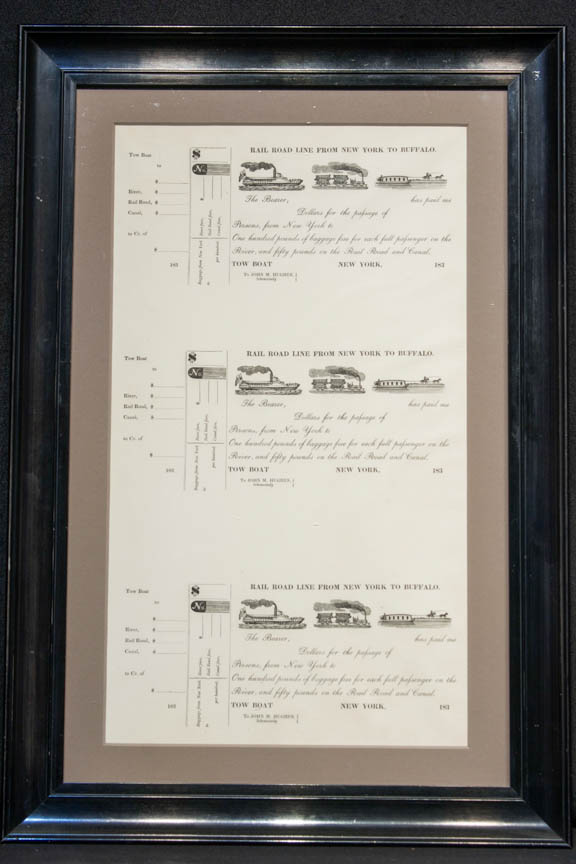 RAIL ROAD LINE FROM NEW YORK TO BUFFALO.
Tow Boat
to
$
River, $
Rail Road, $
Canal, $
to Cr. of
$
183
No.
$
River fare,
Rail Road fare,
Canal fare,
Baggage from New York
to
per hundred
The Bearer, has paid me
Dollars for the passage of
Persons, from New York to
One hundred pounds of baggage free for each full passenger on the
River, and fifty pounds on the Road Road and Canal.
TOW BOAT NEW YORK, 183
To JOHN M. HUGHES,
Schenectady
RAIL ROAD LINE FROM NEW YORK TO BUFFALO.
Tow Boat
to
$
River, $
Rail Road, $
Canal, $
to Cr. of
$
183
No.
$
River fare,
Rail Road fare,
Canal fare,
Baggage from New York
to
per hundred
The Bearer, has paid me
Dollars for the passage of
Persons, from New York to
One hundred pounds of baggage free for each full passenger on the
River, and fifty pounds on the Road Road and Canal.
TOW BOAT NEW YORK, 183
To JOHN M. HUGHES,
Schenectady
RAIL ROAD LINE FROM NEW YORK TO BUFFALO.
Tow Boat
to
$
River, $
Rail Road, $
Canal, $
to Cr. of
$
183
No.
$
River fare,
Rail Road fare,
Canal fare,
Baggage from New York
to
per hundred
The Bearer, has paid me
Dollars for the passage of
Persons, from New York to
One hundred pounds of baggage free for each full passenger on the
River, and fifty pounds on the Road Road and Canal.
TOW BOAT NEW YORK, 183
To JOHN M. HUGHES,
Schenectady